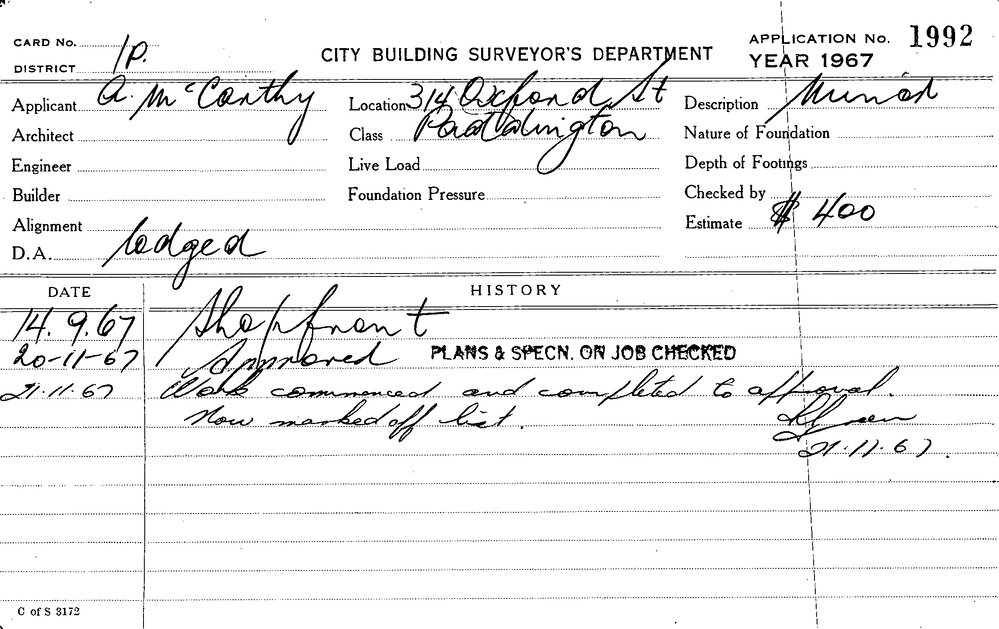 CARD No. 1P.
DISTRICT
CITY BUILDING SURVEYOR'S DEPARTMENT
APPLICATION No. 1992
YEAR 1967
Applicant A. McCarthy
Location 314 Oxford St
Description Minor
Architect
Class Paddington
Nature of Foundation
Engineer
Live Load
Depth of Footings
Builder
Foundation Pressure
Checked by
Alignment
Estimate $ 400
D.A. lodged
DATE HISTORY
14.9.67 Shopfront
20-11-67 Approved PLANS & SPECN. ON JOB CHECKED
21.11.67 Work commenced and completed to approval.
Now marked off list.
21.11.67.
C of S 3172